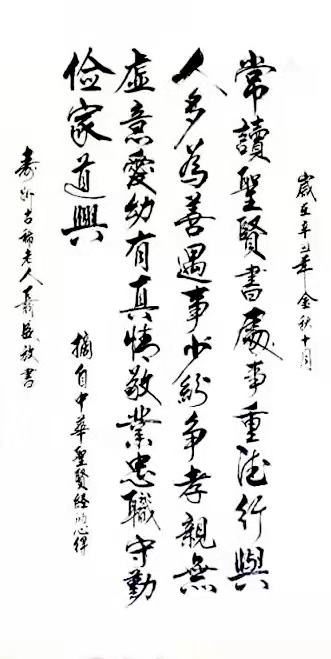 歲在辛丑年金秋十月
常讀聖賢書處事重德行與
人多為善遇事少紛争孝親無
虛意愛幼有真情敬業忠職守勤
俭家道興
摘自中華聖賢經的心得
壽州古稀老人書